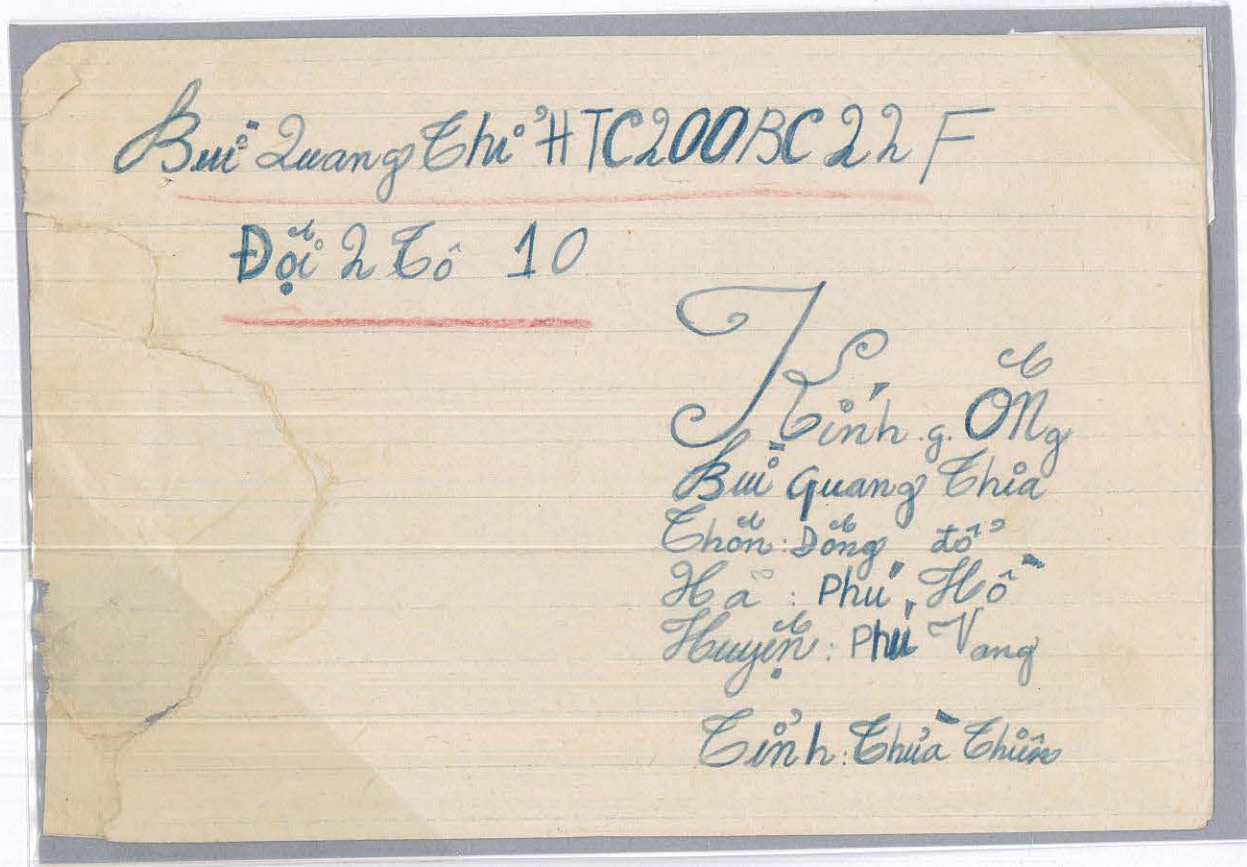 Bùi Quang Thỉ HTC200BC22F
Đội 2 Tổ 10
Kính g. Ông
Bùi Quang Thia
Thôn: Dông đồ
Hã: Phú, Hồ
Huyện: Phú Vang
Tỉnh: Thừa Thiên